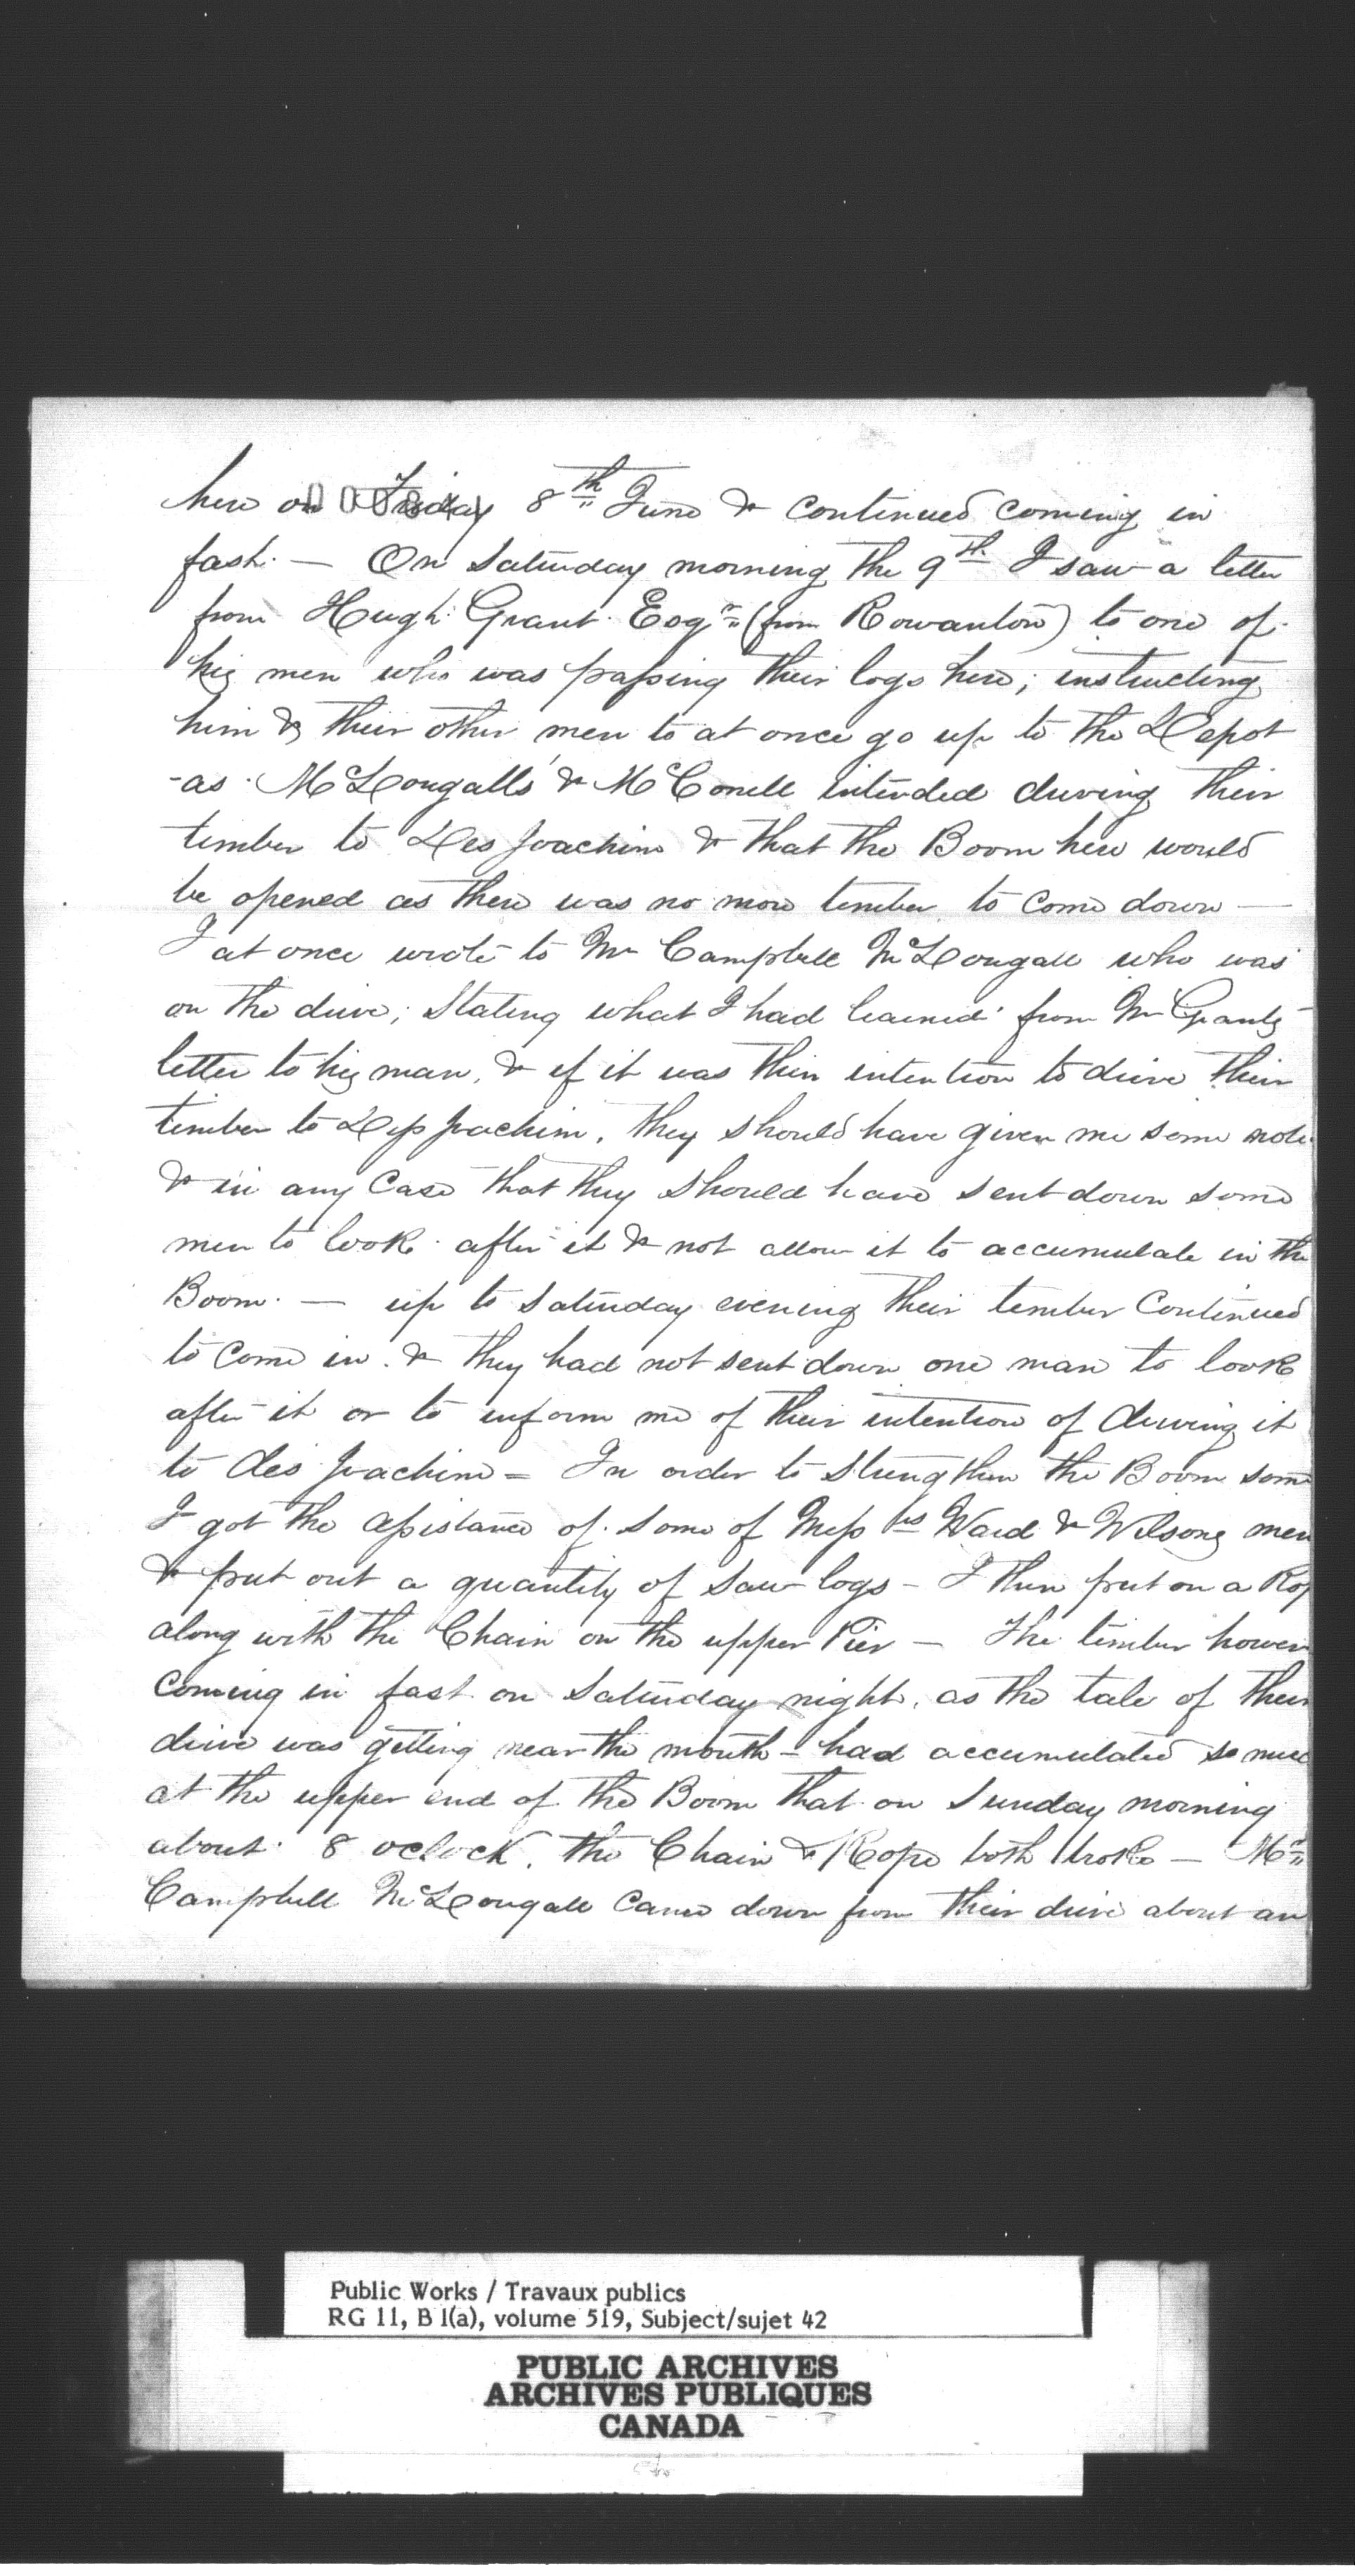 here on Friday 8th June & continued coming in
fast. — On Saturday morning the 9th I saw a letter
from Hugh Grant Esqr (from Rowanton) to one of
his men who was passing their logs here; instructing
him & their other men to at once go up to the Depot
-as McDougalls & McConell intended driving their
timber to Des Joachim & that the Boom here would
be opened as there was no more timber to come down —
I at once wrote to Mr Campbell McDougall who was
on the drive; Stating what I had learned from Mr Grants
letter to his man, & if it was their intention to drive their
timber to Des Joachim, they should have given me some
& in any Case that they should have sent down some
men to look after it & not allow it to accumulate in the
Boom. — up to Saturday evening their timber Continued
to come in & they had not sent down one man to look
after it or to inform me of their intention of driving it
to des Joachim = In order to Strengthen the Boom some
I got the assistance of some of Messrs Ward & Wilsons men
& put out a quantity of Saw logs – I then put on a Rop
along with the Chain on the upper Pier — The timber howev
coming in fast on Saturday night, as the tale of their
drive was getting near the mouth – had accumulated so muc
at the upper end of the Boom that on Sunday morning
about 8 oclock, the Chain & Rope both broke — Mr
Campbell McDougall came down from their drive about an
Public Works / Travaux publics
RG 11, B 1(a), volume 519, Subject/sujet 42
PUBLIC ARCHIVES
ARCHIVES PUBLIQUES
CANADA